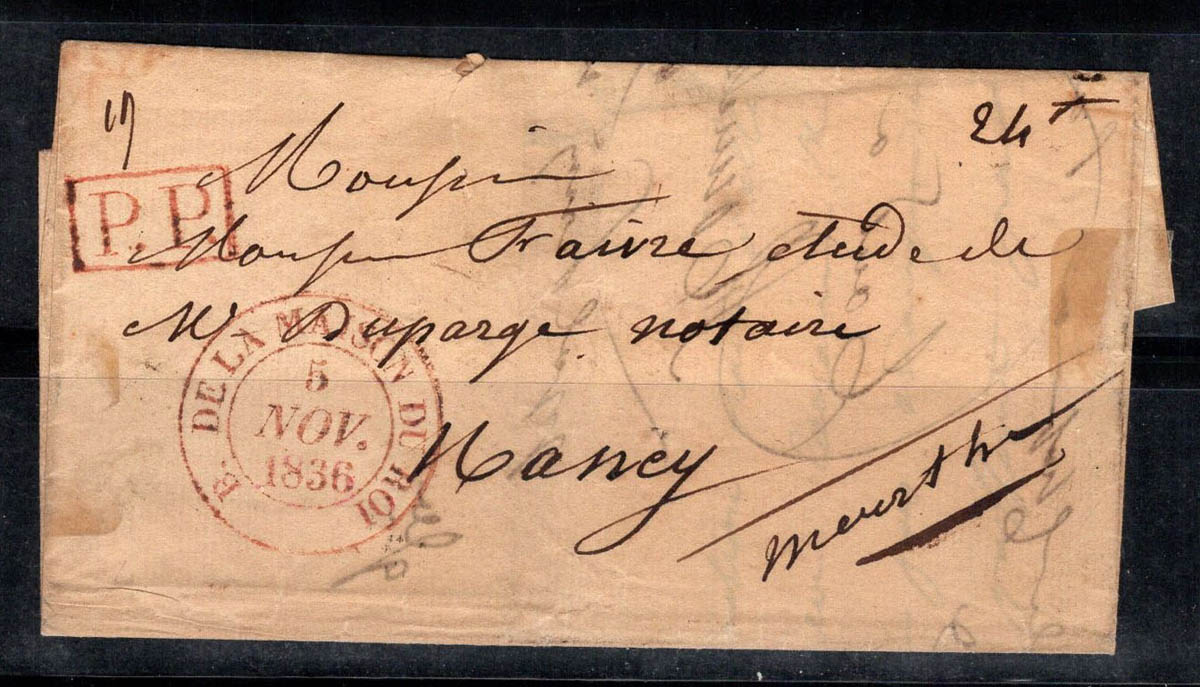 24
P.P.
Monsieur
Monsieur Faivre etude de
Mr Duparge notaire
Nancy
meurthe
B. DE LA MAISON DU ROI
5
NOV.
1836